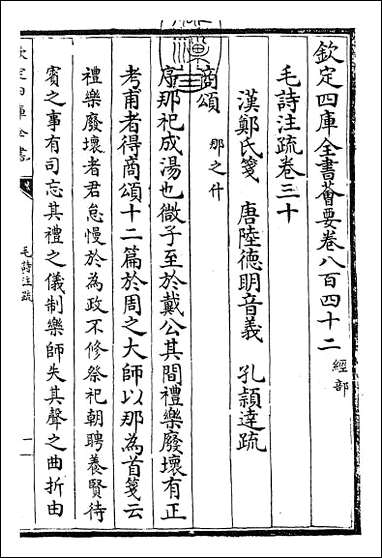 欽定四庫全書薈要卷八百四十二 經部
毛詩注疏卷三十
漢鄭氏箋 唐陸德明音義 孔穎達疏
那之什
商頌
序那祀成湯也微子至於戴公其間禮樂廢壞有正
考甫者得商頌十二篇於周之大師以那為首箋云
禮樂廢壞者君怠慢於為政不修祭祀朝聘養賢待
賓之事有司忘其禮之儀制樂師失其聲之曲折由
欽定四庫全書
毛詩注疏
一